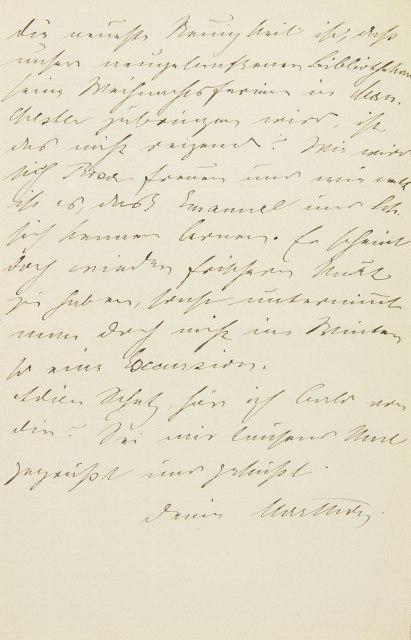 Die neueste Neuigkeit ist, daß
unser neugebackener Bibliothekar
seine Weihnachtsferien in Man-
chester zubringen wird, ist
das nicht reizend? Wie wird
sich Rosa freuen und wie nett
ist es, daß Emanuel und
sich kennen lernen. Er scheint
doch wieder frischern Mut
zu haben, sonst unternimmt
man doch nicht im Winter
so eine Excursion.
Adieu Schatz, hör ich bald von
dir? Sei mir tausend Mal
gegrüßt und geküßt.
Deine Marthy